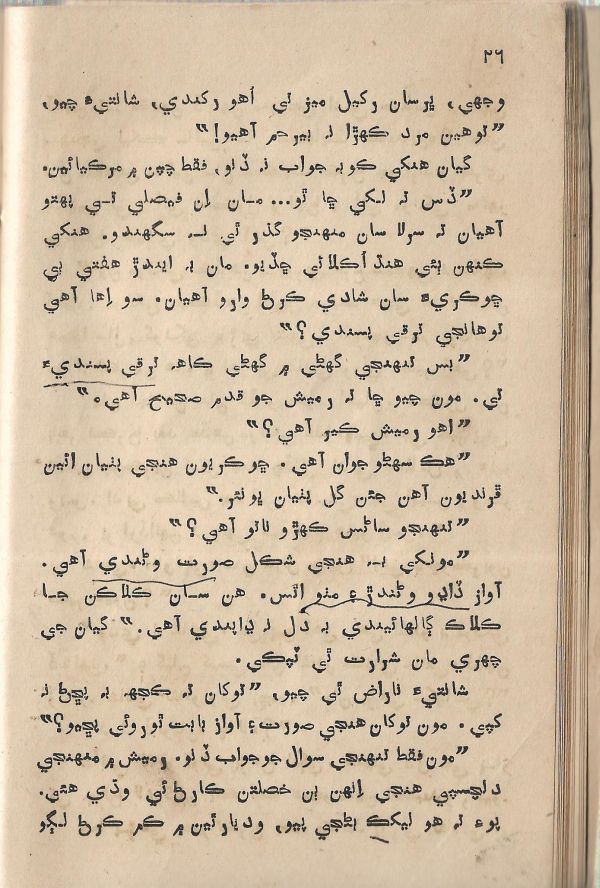 ٢٦
وجهي، ڀرسان رکيل ميز تي اُهو رکندي، شانتيءَ چيو،
”توهين مرد ڪهڙا نہ بيرحم آهيو!“
گيان هنکي ڪوبہ جواب نہ ڏنو، فقط چپن ۾ مرڪيائين.
”ڏس تہ لکي ڇا ٿو... مان اِن فيصلي تي پهتو
آهيان تہ سرلا سان منهنجو گذر ٿي نہ سگهندو. هنکي
ڪنهن ٻئي هنڌ اُڪلائي ڇڏيو. مان بہ ايندڙ هفتي ٻي
ڇوڪريءَ سان شادي ڪرڻ وارو آهيان. سو اِها آهي
توهانجي ترقي پسندي؟“
”بس تنهنجي گهڻي ۾ گهڻي ڪاهہ ترقي پسنديءَ
تي. مون چيو ڇا تہ رميش جو قدم صحيح آهي.“
”اهو رميش ڪير آهي؟“
”هڪ سهڻو جوان آهي. ڇوڪريون هنجي پٺيان ائين
ڦرنديون آهن جئن گل پٺيان ڀونئر.“
”تنهنجو ساڻس ڪهڙو ناتو آهي؟“
”مونکي بہ هنجي شڪل صورت وڻندي آهي.
آواز ڏاڍو وڻندڙ ۽ مٺو اٿس. هن سان ڪلاڪن جا
ڪلاڪ ڳالهائيندي بہ دل نہ ڍاپندي آهي.“ گيان جي
چهري مان شرارت ٿي ٽپڪي.
شانتيءَ ناراض ٿي چيو، ”توکان تہ ڪجهہ بہ پڇڻ نہ
کپي. مون توکان هنجي صورت ۽ آواز بابت ٿوروئي پڇيو؟“
”مون فقط تنهنجي سوال جو جواب ڏنو. رميش ۾ منهنجي
دلچسپي هنجي اِنهن ٻن خصلتن ڪارڻ ئي وڌي هئي.
پوءِ تہ هو ليکڪ بڻجي پيو، وديارٿين ۾ ڪم ڪرڻ لڳو